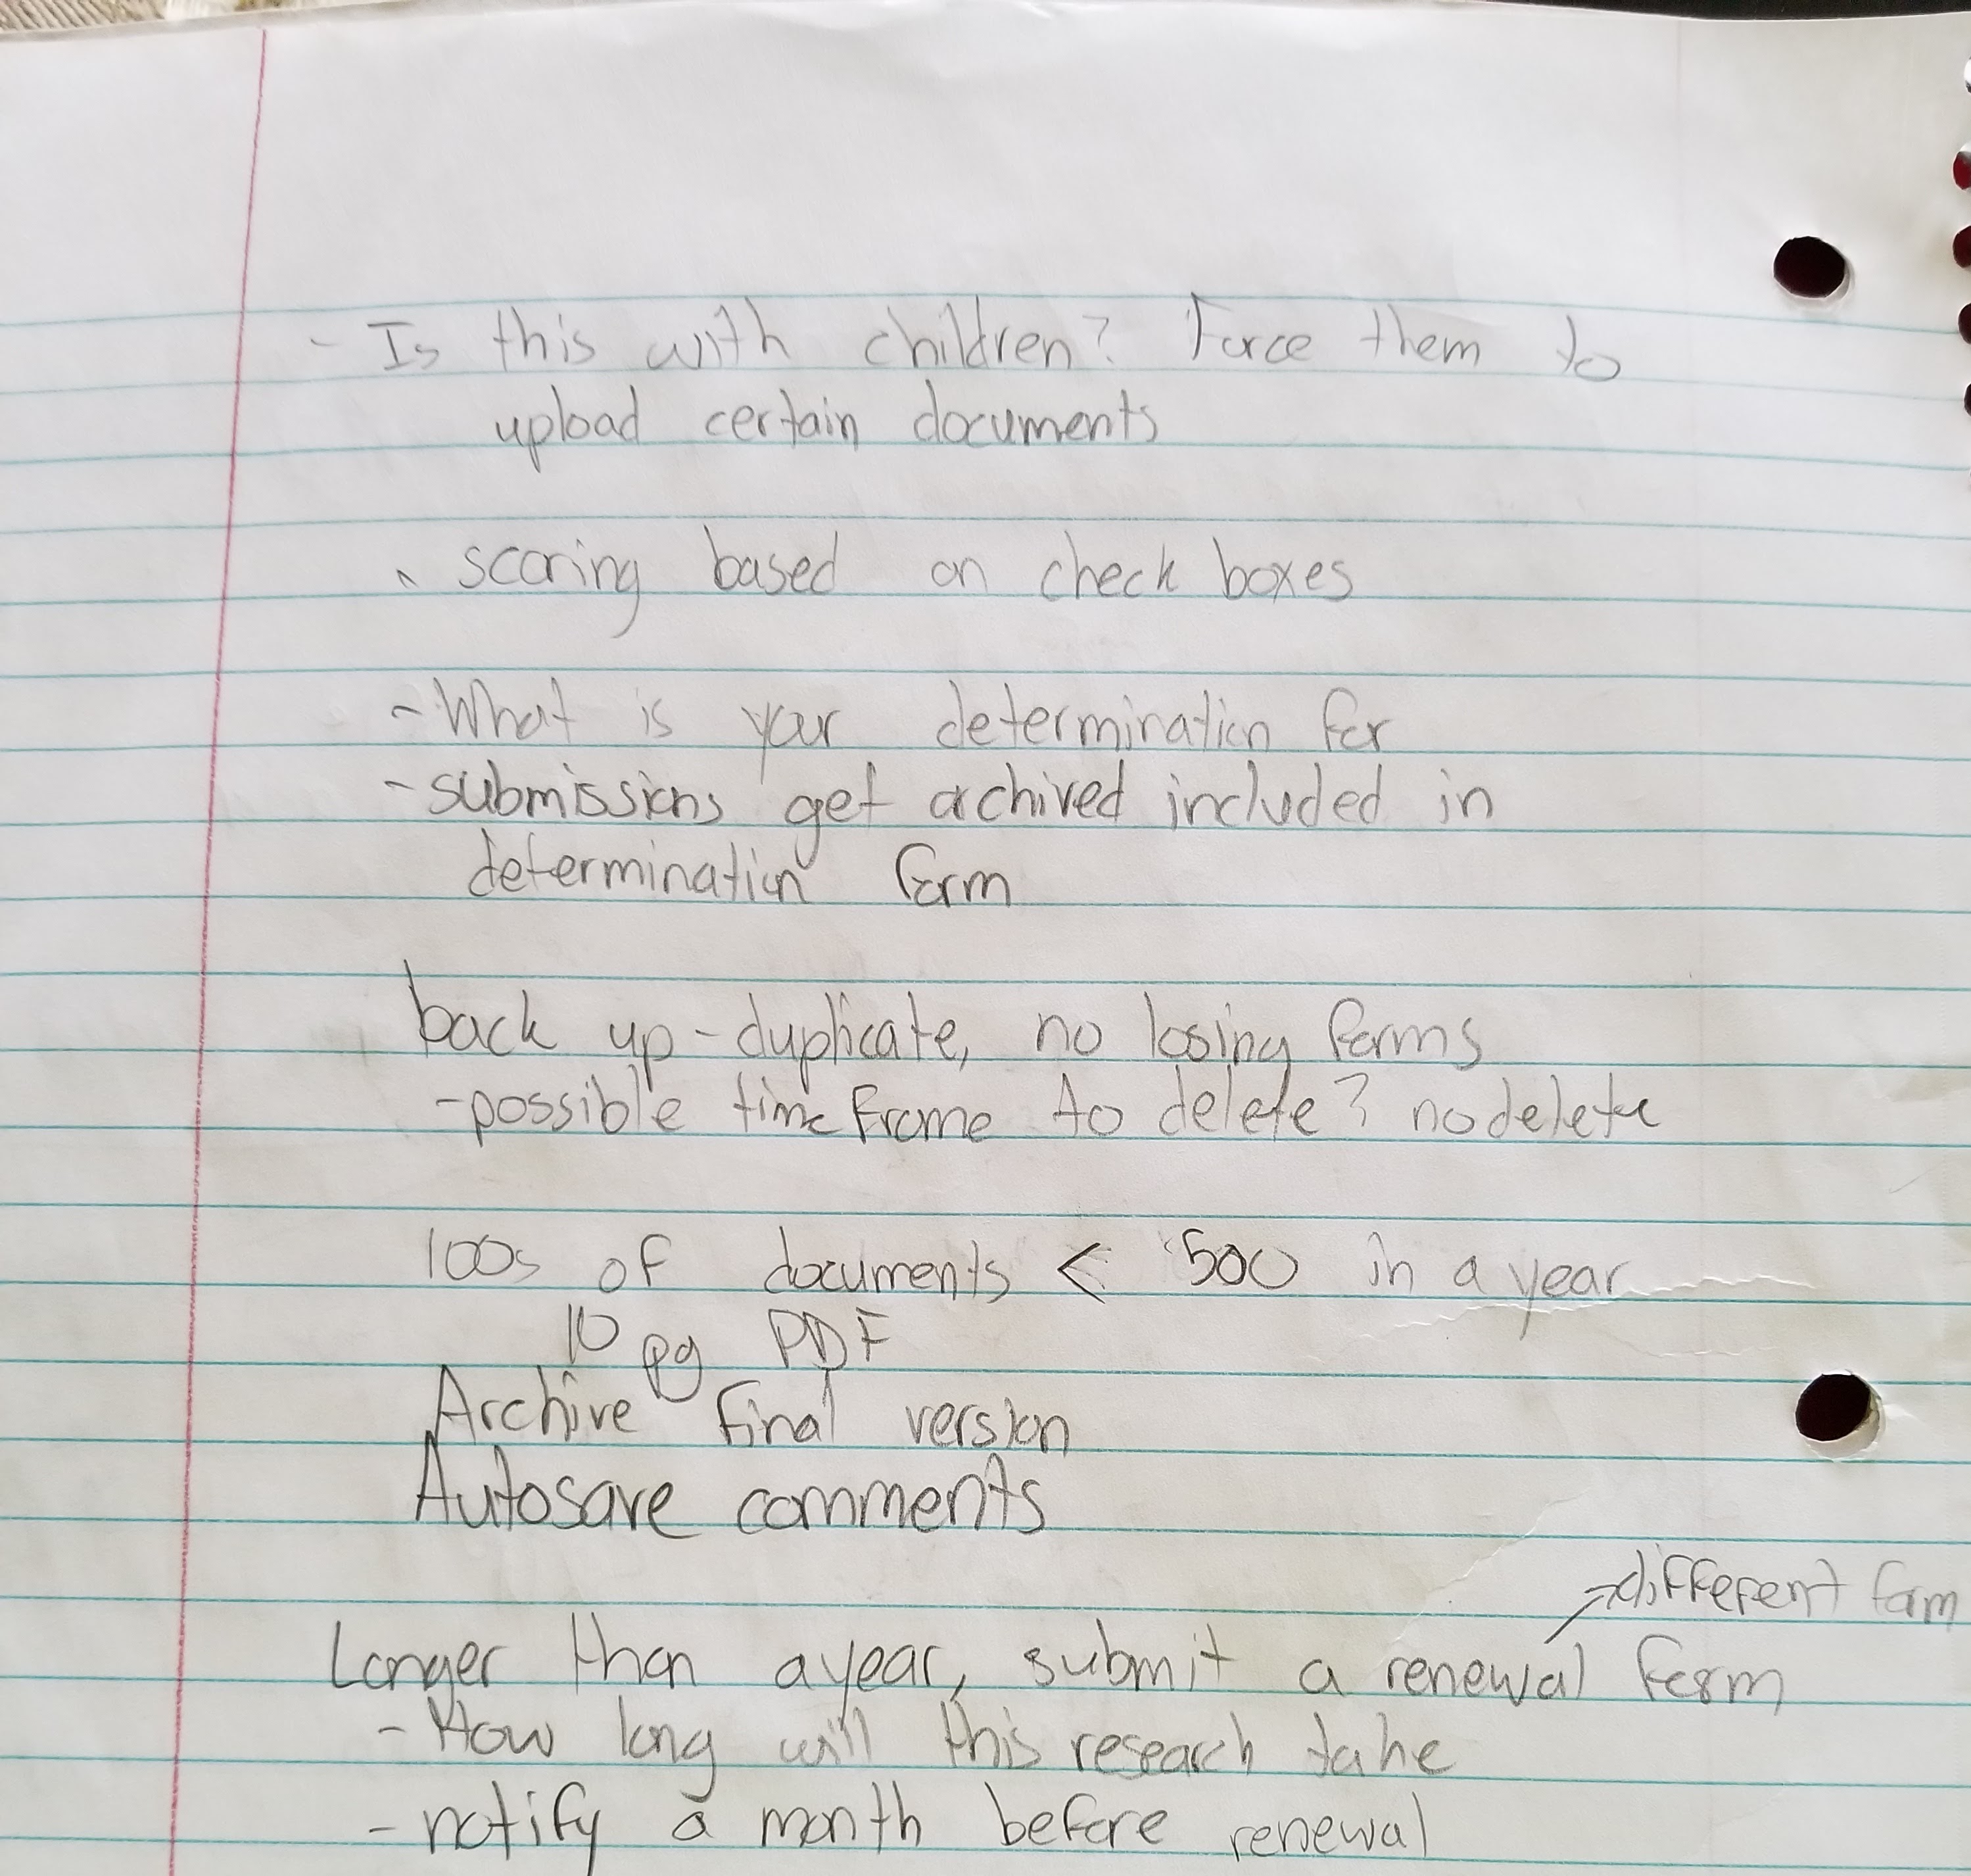 - Is this with children? Force them to
upload certain documents
- scoring based on check boxes
- What is your determination for
- submissions get archived included in
determination form
back up - duplicate, no losing forms
- possible time frame to delete? no delete
100s of documents < 500 in a year
10 pg PDF
Archive final version
Autosave comments
→ different form
Longer than a year, submit a renewal form
- How long will this research take
- notify a month before renewal